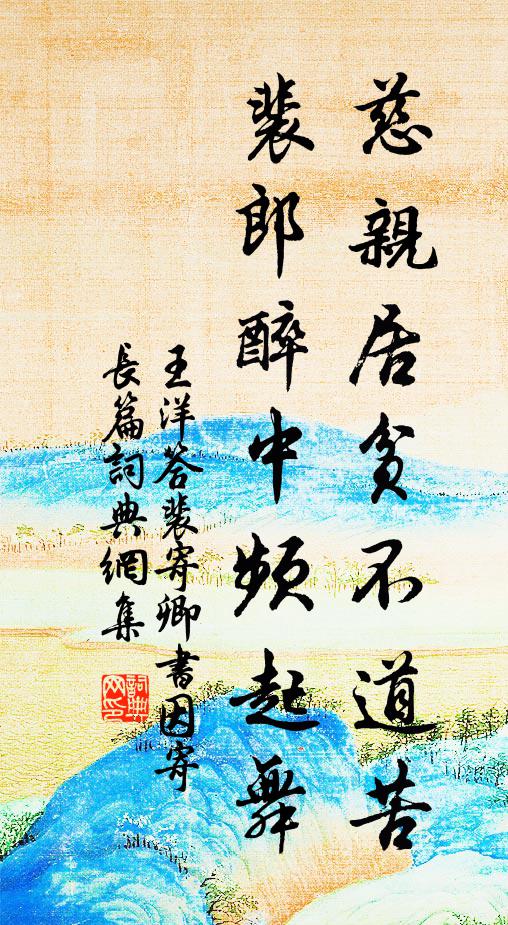 慈親居貧不道苦
裴郎醉中頻起舞
王洋答裴寄卿書因寄
長篇詞典網集
詞典网印